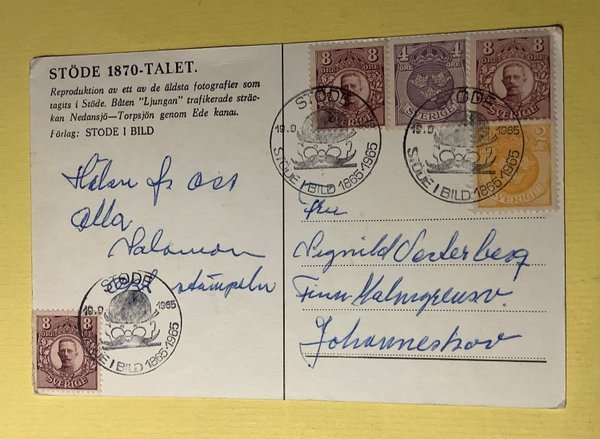 STÖDE 1870-TALET.
Reproduktion av ett av de äldsta fotografier som
tagits i Stöde. Båten "Ljungan" trafikerade sträc-
kan Nedansjö—Torpsjön genom Ede kanal.
Förlag: STÖDE I BILD
Hälsn fr oss
alla
Salomon
stämpeln
8 ÖRE 8
SVERIGE
4 ÖRE 4 ÖRE
SVERIGE
8 ÖRE 8
SVERIGE
2
SVERIGE
STÖDE
19.9 1965
STÖDE I BILD 1865-1965
STÖDE
19.9 1965
STÖDE I BILD 1865-1965
Fru
Signhild Vesterberg
Finn Malmgrensv.
Johanneshov
STÖDE
19.9 1965
STÖDE I BILD 1865-1965
8 ÖRE 8
SVERIGE